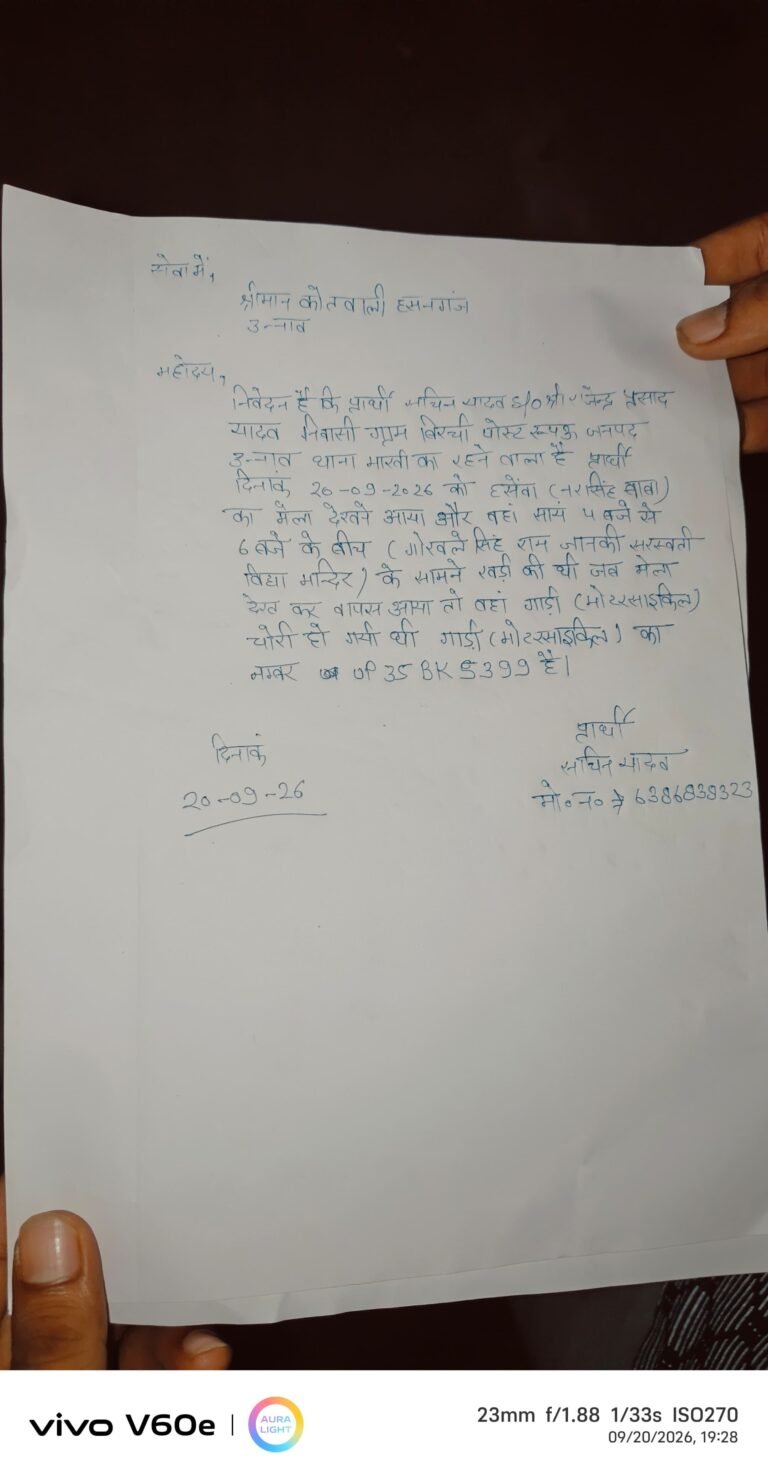 सेवा में,
श्रीमान कोतवाली हसनगंज
उन्नाव
महोदय,
निवेदन है कि प्रार्थी सचिन यादव S/O श्री प्रसाद
यादव निवासी ग्राम पोस्ट जनपद
उन्नाव थाना का रहने वाला है प्रार्थी
दिनांक 20-09-2026 को (नरसिंह बाबा)
का मेला देखने आया और वहां सायं 4 बजे से
6 बजे के बीच (गोखले सिंह राम जानकी सरस्वती
विद्या मन्दिर) के सामने खड़ी की थी जब मेला
देख कर वापस आया तो वहां गाड़ी (मोटरसाइकिल)
चोरी हो गयी थी गाड़ी (मोटरसाइकिल) का
नम्बर UP 35 BK 5399 है।
दिनांक
20-09-26
प्रार्थी
सचिन यादव
मो० न० → 6386839323
vivo V60e | AURA LIGHT
23mm f/1.88 1/33s ISO270
09/20/2026, 19:28